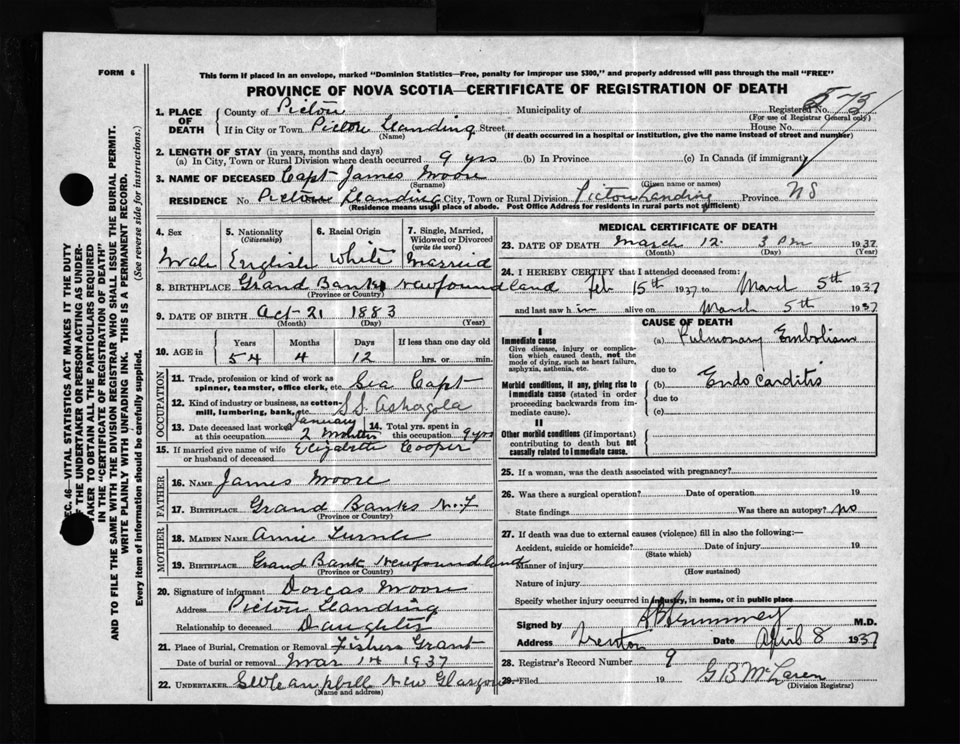 FORM 6
This form if placed in an envelope, marked "Dominion Statistics—Free, penalty for improper use $300," and properly addressed will pass through the mail "FREE"
PROVINCE OF NOVA SCOTIA—CERTIFICATE OF REGISTRATION OF DEATH
1. PLACE OF DEATH
County of Pictou Municipality of Registered No. 573
(For use of Registrar General only)
If in City or Town Pictou Landing Street House No.
(Name) (If death occurred in a hospital or institution, give the name instead of street and number)
2. LENGTH OF STAY (in years, months and days)
(a) In City, Town or Rural Division where death occurred 9 yrs (b) In Province (c) In Canada (if immigrant)
3. NAME OF DECEASED Capt James Moore
(Surname) (Given name or names)
RESIDENCE No. Pictou Landing City, Town or Rural Division Pictou Landing Province NS
(Residence means usual place of abode. Post Office Address for residents in rural parts not sufficient)
SEC. 46—VITAL STATISTICS ACT MAKES IT THE DUTY
OF THE UNDERTAKER OR PERSON ACTING AS UNDER-
TAKER TO OBTAIN ALL THE PARTICULARS REQUIRED
IN THE "CERTIFICATE OF REGISTRATION OF DEATH"
AND TO FILE THE SAME WITH THE DIVISION REGISTRAR WHO SHALL ISSUE THE BURIAL PERMIT.
WRITE PLAINLY WITH UNFADING INK. THIS IS A PERMANENT RECORD.
Every item of Information should be carefully supplied. (See reverse side for instructions.)
4. Sex
Male
5. Nationality
(Citizenship)
English
6. Racial Origin
White
7. Single, Married,
Widowed or Divorced
(write the word)
Married
8. BIRTHPLACE Grand Banks Newfoundland
(Province or Country)
9. DATE OF BIRTH Oct 21 1883
(Month) (Day) (Year)
10. AGE in
Years Months Days If less than one day old
54 4 12 hrs. or min.
OCCUPATION
11. Trade, profession or kind of work as
spinner, teamster, office clerk, etc. Sea Capt
12. Kind of industry or business, as cotton-
mill, lumbering, bank, etc. S.S.
13. Date deceased last worked January
at this occupation 2 Months
14. Total yrs. spent in
this occupation 9 yrs
15. If married give name of wife
or husband of deceased Elizabeth Cooper
FATHER
16. NAME James Moore
17. BIRTHPLACE Grand Banks N.F
(Province or Country)
MOTHER
18. MAIDEN NAME Annie
19. BIRTHPLACE Grand Bank Newfoundland
(Province or Country)
20. Signature of informant Dorcas Moore
Address Pictou Landing
Relationship to deceased Daughter
21. Place of Burial, Cremation or Removal Fishers Grant
Date of burial or removal Mar 14 1937
22. UNDERTAKER Campbell New Glasgow
(Name and address)
MEDICAL CERTIFICATE OF DEATH
23. DATE OF DEATH March 12. 3 Pm 1937
(Month) (Day) (Year)
24. I HEREBY CERTIFY that I attended deceased from:
Feb 15th 1937 to March 5th 1937
and last saw h im alive on March 5th 1937
CAUSE OF DEATH
I
Immediate cause
Give disease, injury or complica-
tion which caused death, not the
mode of dying, such as heart failure,
asphyxia, asthenia, etc.
(a) Pulmonary Embolism
due to
Morbid conditions, if any, giving rise to
immediate cause (stated in order
proceeding backwards from im-
mediate cause).
(b) Endo Carditis
due to
(c)
II
Other morbid conditions (if important)
contributing to death but not
causally related to immediate cause.
25. If a woman, was the death associated with pregnancy?
26. Was there a surgical operation? Date of operation 19
State findings Was there an autopsy? no
27. If death was due to external causes (violence) fill in also the following:—
Accident, suicide or homicide? Date of injury 19
(State which)
Manner of injury
(How sustained)
Nature of injury
Specify whether injury occurred in industry, in home, or in public place
Signed by M.D.
Address Trenton Date April 8 1937
28. Registrar's Record Number 9
29. Filed 19 G B McLaren
(Division Registrar)